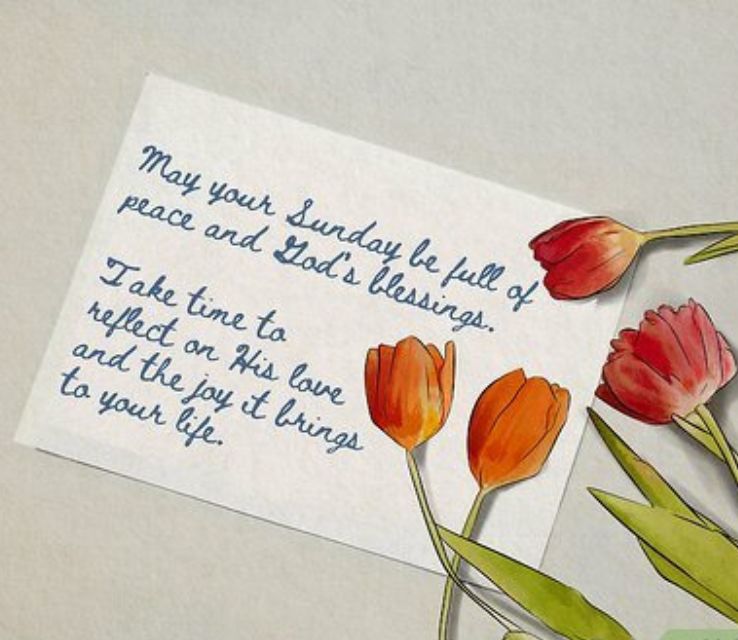 May your Sunday be full of
peace and God's blessings.
Take time to
reflect on His love
and the joy it brings
to your life.